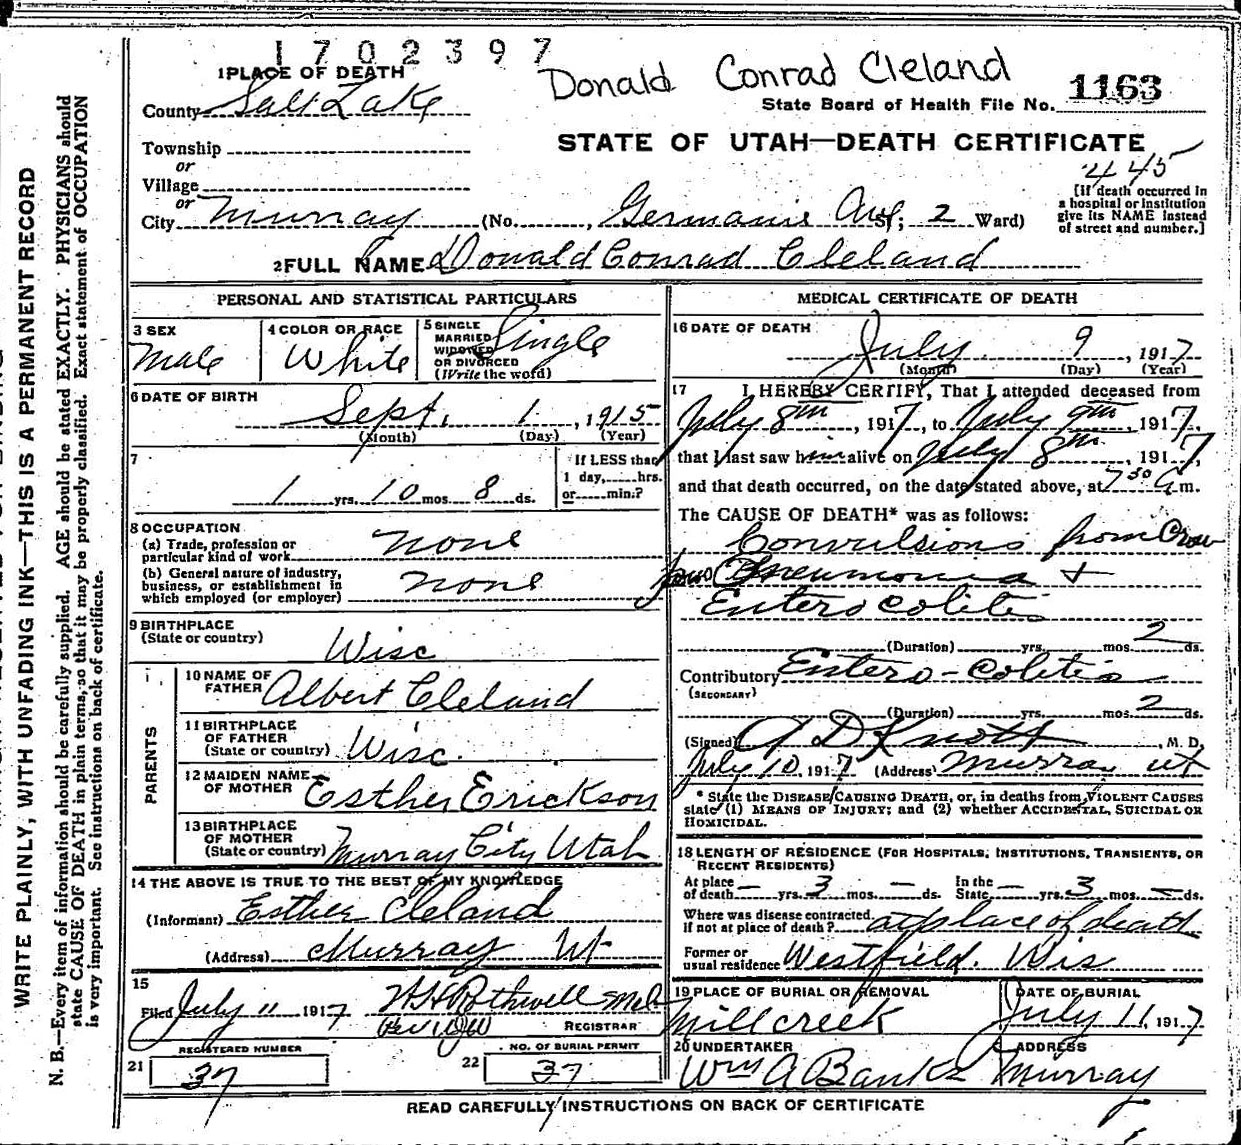 1702397
Donald Conrad Cleland
1 PLACE OF DEATH
County Salt Lake
State Board of Health File No. 1163
STATE OF UTAH—DEATH CERTIFICATE
Township
or
Village
or
City Murray (No. , Germania Ave St; 2 Ward)
445
[If death occurred in
a hospital or institution
give its NAME instead
of street and number.]
2 FULL NAME Donald Conrad Cleland
PERSONAL AND STATISTICAL PARTICULARS
3 SEX
Male
4 COLOR OR RACE
White
5 SINGLE
MARRIED
WIDOWED
OR DIVORCED
(Write the word)
Single
6 DATE OF BIRTH
Sept. 1, 1915
(Month) (Day) (Year)
7
1 yrs. 10 mos. 8 ds.
If LESS than
1 day, hrs.
or min.?
8 OCCUPATION
(a) Trade, profession or
particular kind of work none
(b) General nature of industry,
business, or establishment in
which employed (or employer) none
9 BIRTHPLACE
(State or country) Wisc
PARENTS
10 NAME OF
FATHER Albert Cleland
11 BIRTHPLACE
OF FATHER
(State or country) Wisc.
12 MAIDEN NAME
OF MOTHER Esther Erickson
13 BIRTHPLACE
OF MOTHER
(State or country) Murray City Utah
14 THE ABOVE IS TRUE TO THE BEST OF MY KNOWLEDGE
(Informant) Esther Cleland
(Address) Murray Ut
15
Filed July 11 1917 Rothwell
REGISTRAR
REGISTERED NUMBER
21 37
NO. OF BURIAL PERMIT
22 37
MEDICAL CERTIFICATE OF DEATH
16 DATE OF DEATH
July 9, 1917
(Month) (Day) (Year)
17 I HEREBY CERTIFY, That I attended deceased from
July 8th, 1917, to July 9th, 1917,
that I last saw him alive on July 8th, 1917,
and that death occurred, on the date stated above, at 7 30 A m.
The CAUSE OF DEATH* was as follows:
Convulsions from Crou
pous Pneumonia +
Entero colitis
(Duration) yrs. mos. 2 ds.
Contributory Entero-Colitis
(SECONDARY)
(Duration) yrs. mos. 2 ds.
(Signed) A D Knott, M. D.
July 10, 1917 (Address) Murray Ut
* State the DISEASE CAUSING DEATH, or, in deaths from VIOLENT CAUSES
state (1) MEANS OF INJURY; and (2) whether ACCIDENTAL, SUICIDAL OR
HOMICIDAL.
18 LENGTH OF RESIDENCE (FOR HOSPITALS, INSTITUTIONS, TRANSIENTS, OR
RECENT RESIDENTS)
At place
of death — yrs. 3 mos. — ds.
In the
State — yrs. 3 mos. — ds.
Where was disease contracted
if not at place of death? at place of death
Former or
usual residence Westfield. Wis
19 PLACE OF BURIAL OR REMOVAL
Millcreek
DATE OF BURIAL
July 11, 1917
20 UNDERTAKER
Wm A Banks
ADDRESS
Murray
READ CAREFULLY INSTRUCTIONS ON BACK OF CERTIFICATE
WRITE PLAINLY, WITH UNFADING INK—THIS IS A PERMANENT RECORD
N. B.—Every item of information should be carefully supplied. AGE should be stated EXACTLY. PHYSICIANS should
state CAUSE OF DEATH in plain terms, so that it may be properly classified. Exact statement of OCCUPATION
is very important. See instructions on back of certificate.